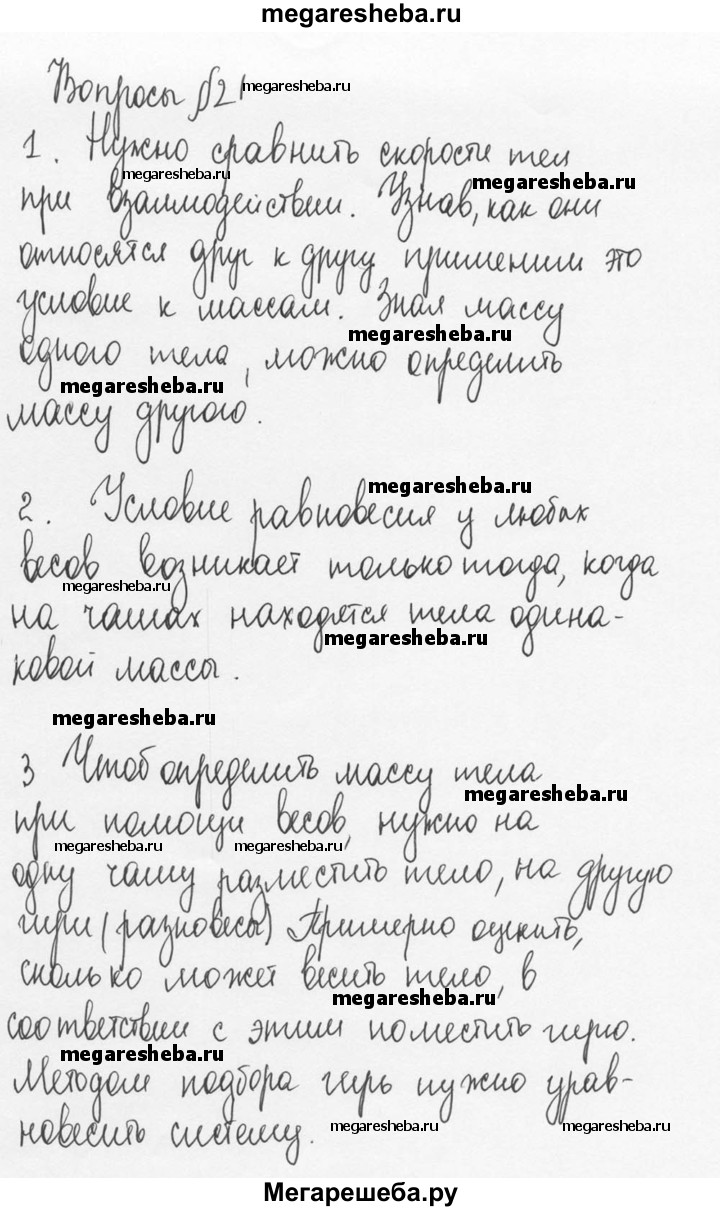 megaresheba.ru
Вопросы §21 megaresheba.ru
1. Нужно сравнить скорости тел
megaresheba.ru
megaresheba.ru
при взаимодействии. Узнав, как они
относятся друг к другу применим это
условие к массам. Зная массу
megaresheba.ru
одного тела, можно определить
megaresheba.ru
массу другого.
megaresheba.ru
2. Условие равновесия у любых
весов возникает только тогда, когда
megaresheba.ru
на чашах находятся тела одина-
megaresheba.ru
ковой массы.
megaresheba.ru
3 Чтоб определить массу тела
megaresheba.ru
при помощи весов, нужно на
megaresheba.ru megaresheba.ru
одну чашу разместить тело, на другую
гири (разновесы) Примерно оценить,
сколько может весить тело, в
megaresheba.ru
соответствии с этим поместить гирю.
megaresheba.ru
Методом подбора гирь нужно урав-
новесить систему. megaresheba.ru megaresheba.ru
Мегарешеба.ру